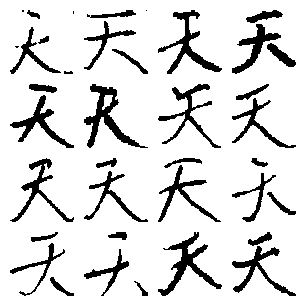 天天天天
天天天天
天天天天
天天天天